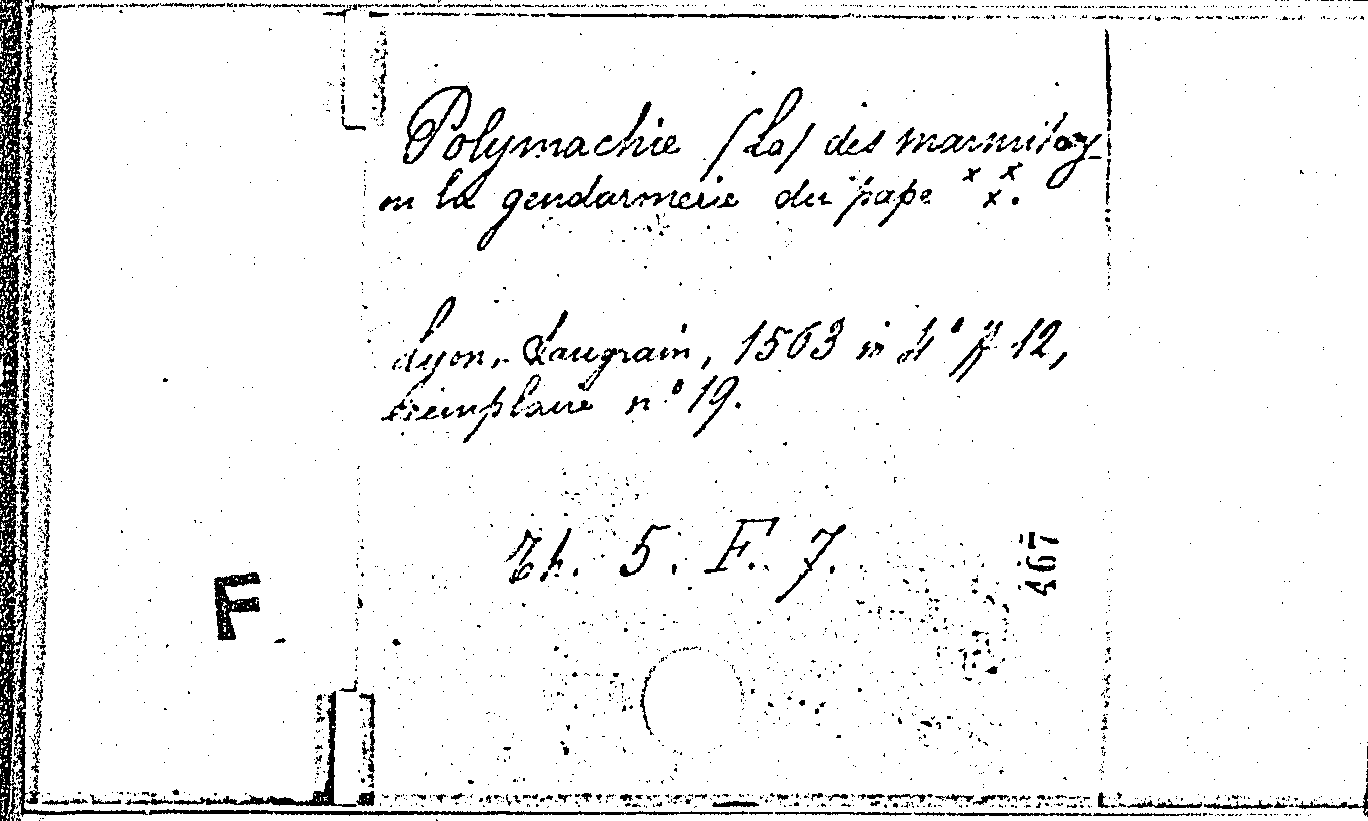 Polymachie (La) des marmitons
ou la gendarmerie du pape xxx.
Lyon, Saugrain, 1563 in 4° ff 12,
exemplaire n° 19.
Th. 5. F. 7.
467
F